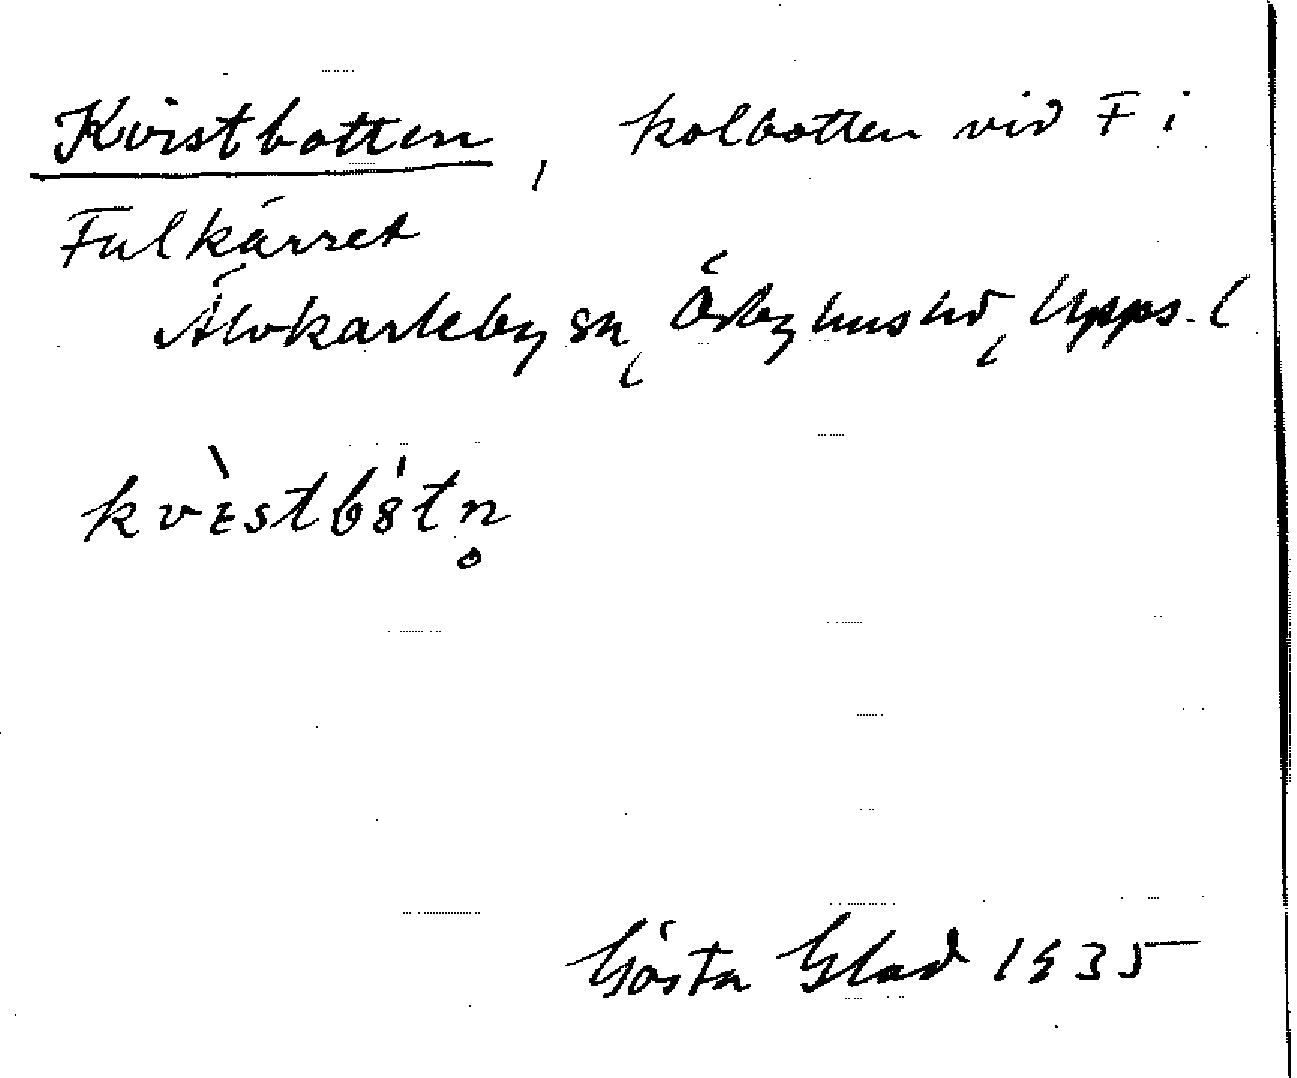 Kvistbotten, kolbotten vid F i
Fulkärret
Älvkarleby sn, Örbyhus hd, Upps. l
kvìstbo̍tn̥
Gösta Glad 1935